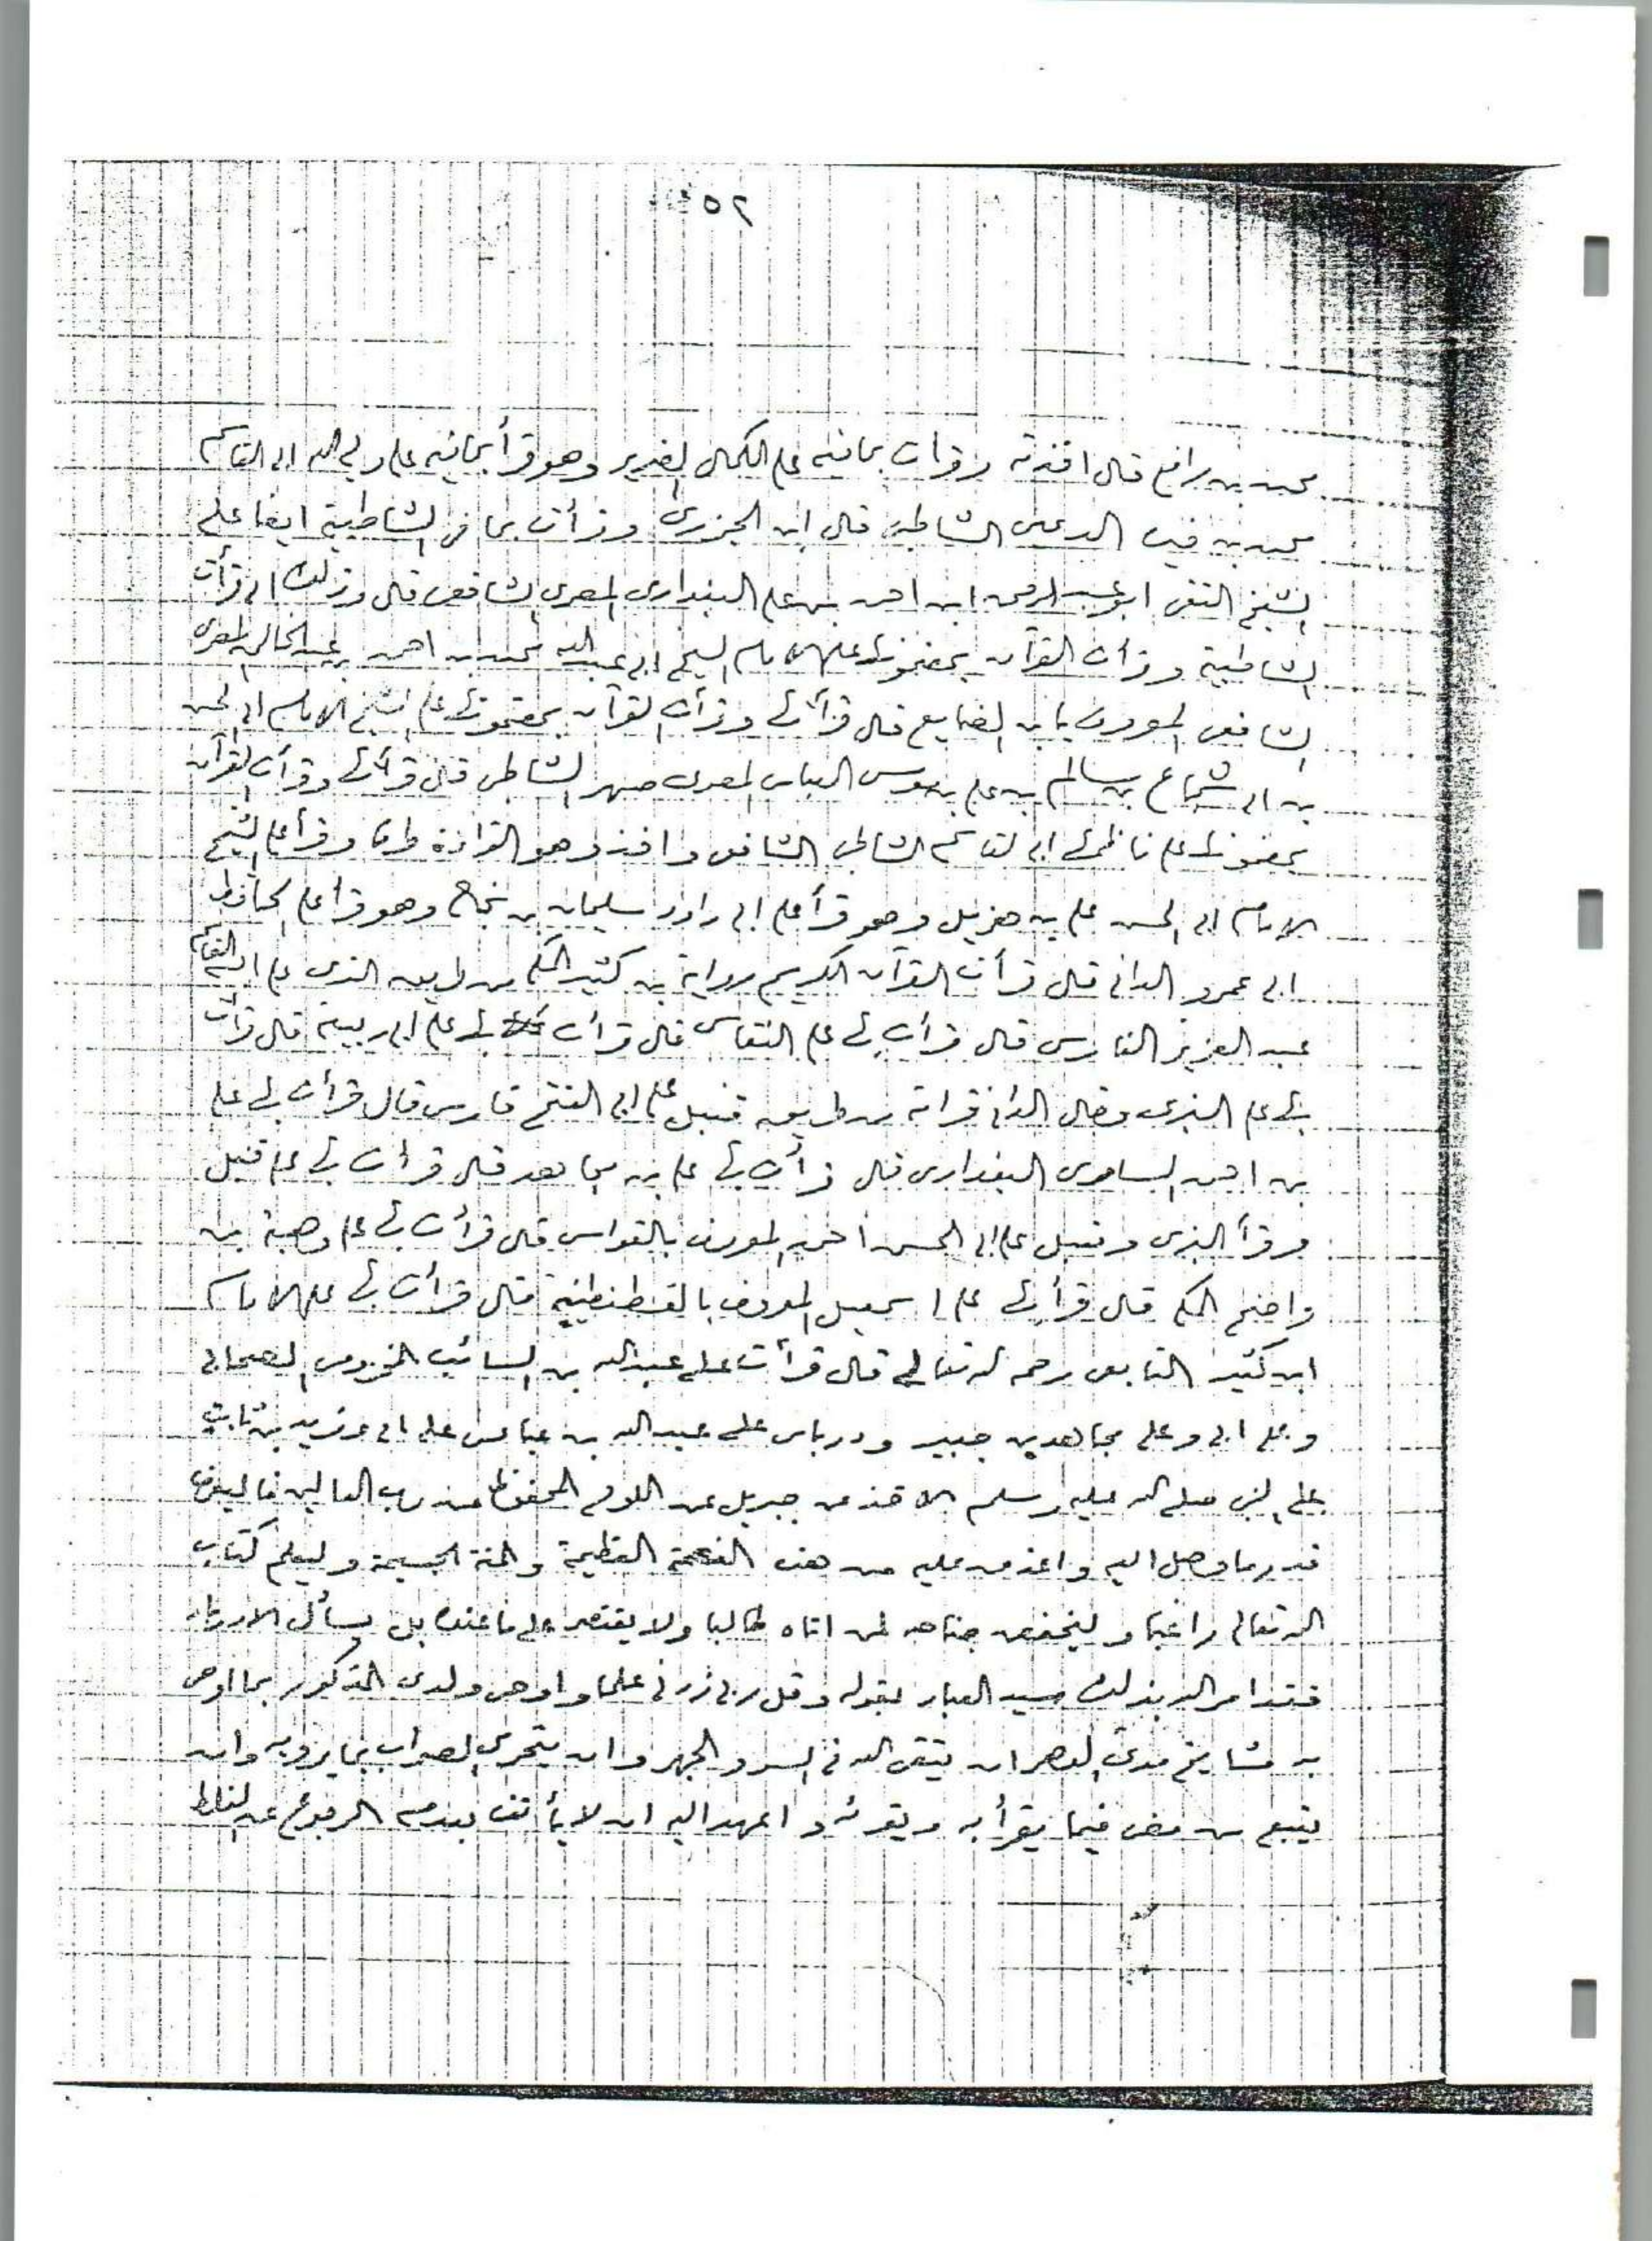 ٥٢
محمد بن رافع قال اخذته وقرأت بمافيه على الكمال الضرير وهو قرأ بمافيه على ولي الله ابي القاسم
محمد بن فيره الرعينى الشاطبى قال ابن الجزرى وقرأت بما فى الشاطبية ايضا على
الشيخ التقى ابو عبد الرحمن ابن احمد بن على البغدادى المصرى الشافعى قال وذلك انى قرأت
الشاطبية وقرأت القرآن بمضمونها على الامام الشيخ ابى عبد الله محمد بن احمد بن عبد الخالق المصرى
الشافعى المعروف بابن الصايغ قال قرأتها وقرأت القرآن بمضمونها على الشيخ الامام ابى الحسن
بن ابى شجاع بن سالم بن على بن موسى العباسى المصرى صهر الشاطبى قال قرأتها وقرأت القرآن
بمضمونها على ناظمها ابى القاسم الشاطبى الشافعى واخذ وهو القراءة طرقا وقرأ على الشيخ
الامام ابى الحسن على بن هزيل وهو قرأ على ابى داود سليمان بن نجاح وهو قرأ على الحافظ
ابى عمرو الدانى قال قرأت القرآن الكريم رواية بن كثير المكى من طريق البزى على ابى القاسم
عبد العزيز الفارسى قال قرأت بها على النقاش قال قرأت بها على ابى ربيعة قال قرأت
بها على البزى وقال الدانى قراته من طريق قنبل على ابى الفتح فارس قال قرأت بها على
بن احمد السامرى البغدادى قال قرأت بها على بن مجاهد قال قرأت بها على قنبل
وقرأ البزى وقنبل على ابى الحسن احمد المعروف بالقواس قال قرأت بها على وهبة بن
واضح المكى قال قرأت بها على اسمعيل المعروف بالقسطنطينية قال قرأت بها على الامام
ابن كثير التابعى رحمه الله تعالى قال قرأت على عبد الله بن السائب المخزومى الصحابى
وعلى ابى وعلى مجاهد بن جبير ودرباس على عبد الله بن عباس على ابى وزيد بن ثابت
على النبى صلى الله عليه وسلم الاخذ من جبريل عن اللوح المحفوظ عن رب العالمين فاليعرف
قدر ما وصل اليه واغذق عليه من هذه النعمة العظيمة والمنة الجسيمة وليعلم كتاب
الله تعالى راغبا وليخفض جناحه لمن اتاه طالبا ولا يقتصر على ما عنده بل يسأل الازدياد
فقد امر الله بذلك سيد العباد بقوله وقل ربى زدنى علما واوصى ولدى المذكور بما اوصى
به مشايخ مدى الدهر ان يتقى الله فى السر والجهر وان يتحرى الصواب بما يرويه وان
يتبع من مضى فيما يقرأ به ويقرئه واعهد اليه ان لا يأنف بعدم الرجوع عن الغلط